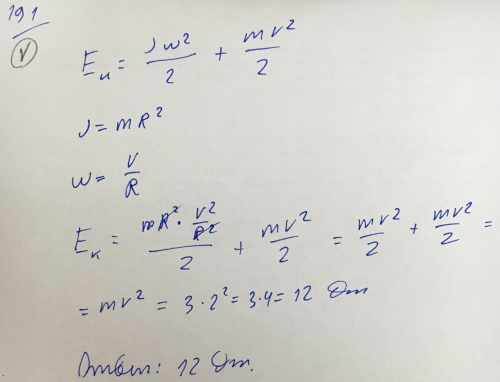 191
V
Eк = Jw²/2 + mv²/2
J = mR²
w = v/R
Eк = (mR² · v²/R²)/2 + mv²/2 = mv²/2 + mv²/2 =
= mv² = 3 · 2² = 3 · 4 = 12 Дж
Ответ: 12 Дж.